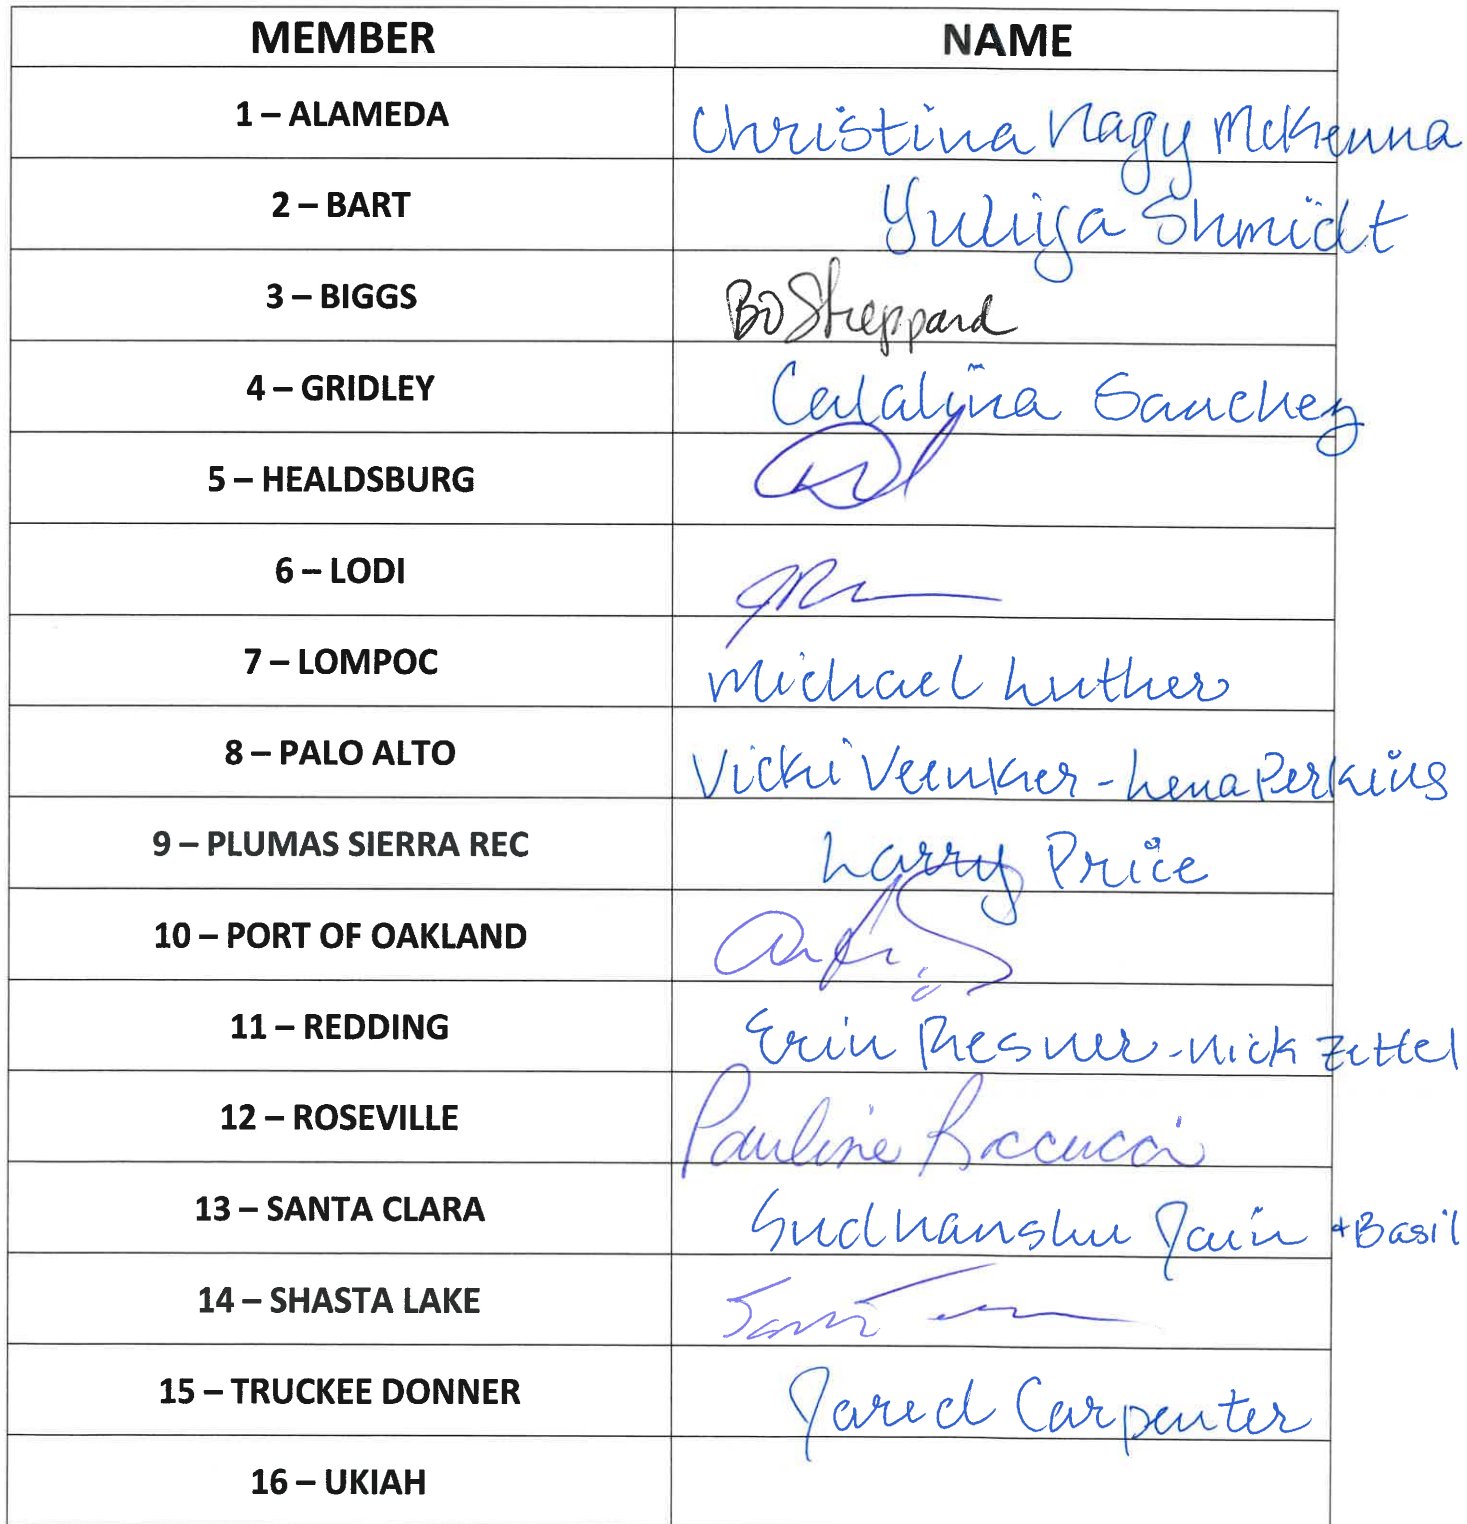 MEMBER NAME
1 – ALAMEDA Christina Nagy McKenna
2 – BART Yuliya Shmidt
3 – BIGGS Bo Sheppard
4 – GRIDLEY Catalina Sanchez
5 – HEALDSBURG
6 – LODI
7 – LOMPOC Michael Luther
8 – PALO ALTO Vicki Veenker - Lena Perkins
9 – PLUMAS SIERRA REC Larry Price
10 – PORT OF OAKLAND
11 – REDDING Erin Resner - Nick Zettel
12 – ROSEVILLE Pauline Roccucci
13 – SANTA CLARA Sudhanshu Jain + Basil
14 – SHASTA LAKE
15 – TRUCKEE DONNER Jared Carpenter
16 – UKIAH